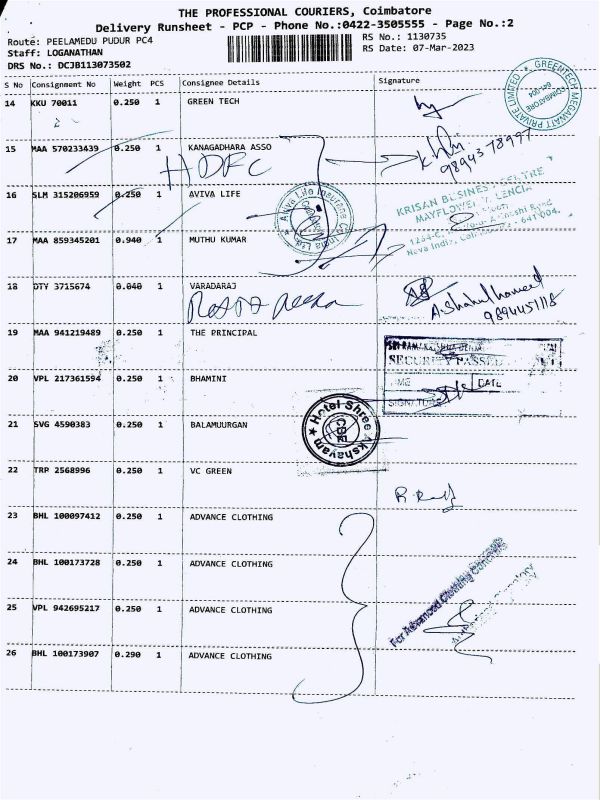 THE PROFESSIONAL COURIERS, Coimbatore
Delivery Runsheet - PCP - Phone No.:0422-3505555 - Page No.:2
Route: PEELAMEDU PUDUR PC4
RS No.: 1130735
Staff: LOGANATHAN
RS Date: 07-Mar-2023
DRS No.: DCJB113073502
S No Consignment No Weight PCS Consignee Details Signature
14 KKU 70011 0.250 1 GREEN TECH
GREENTECH MEGAWATT PRIVATE LIMITED
COIMBATORE
641-004
15 MAA 570233439 0.250 1 KANAGADHARA ASSO
HDFC
9894378997
16 SLM 315206959 0.250 1 AVIVA LIFE
Aviva Life Insurance Co. India Ltd
KRISAN BUSINESS CENTRE
MAYFLOWER VALENCIA
641 004.
17 MAA 859345201 0.940 1 MUTHU KUMAR
18 DTY 3715674 0.040 1 VARADARAJ
A.Shahulhameed
9894451118
19 MAA 941219489 0.250 1 THE PRINCIPAL
SECURITY PASSED
DATE
20 VPL 217361594 0.250 1 BHAMINI
21 SVG 4590383 0.250 1 BALAMUURGAN
Hotel Shree Akshayam
CBE
22 TRP 2568996 0.250 1 VC GREEN
23 BHL 100097412 0.250 1 ADVANCE CLOTHING
24 BHL 100173728 0.250 1 ADVANCE CLOTHING
For Advanced Clothing Concepts
25 VPL 942695217 0.250 1 ADVANCE CLOTHING
26 BHL 100173907 0.290 1 ADVANCE CLOTHING